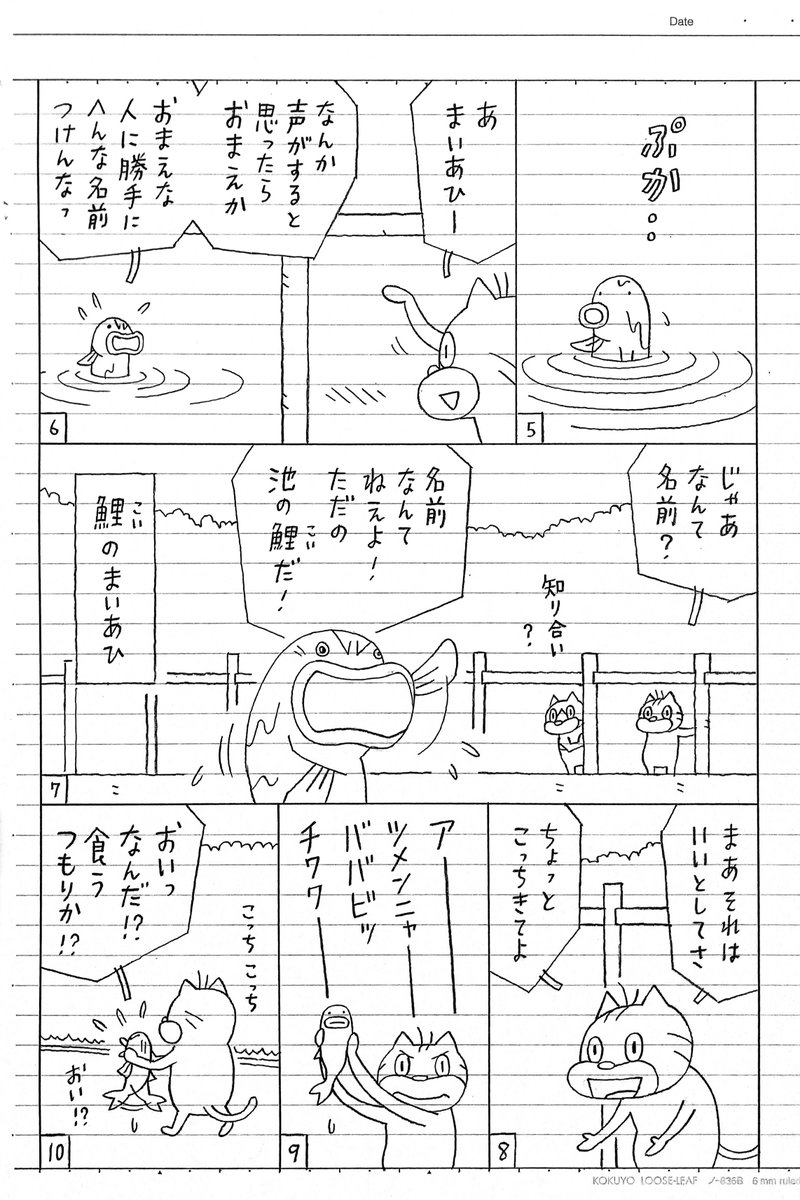 Date
ぷか・・
5
あ
まいあひー
なんか
声がすると
思ったら
おまえか
おまえな
人に勝手に
へんな名前
つけんなっ
6
じゃあ
なんて
名前?
知り合い
?
名前
なんて
ねえよ!
ただの
池の鯉だ!
こい
鯉のまいあひ
こい
7
まあそれは
いいとしてさ
ちょっと
こっちきてよ
8
アー
ツメンニャー
ババビッ
チワワー
9
こっち こっち
おいっ
なんだ!?
食う
つもりか!?
おい!?
10
KOKUYO LOOSE-LEAF ノ-836B 6 mm ruled